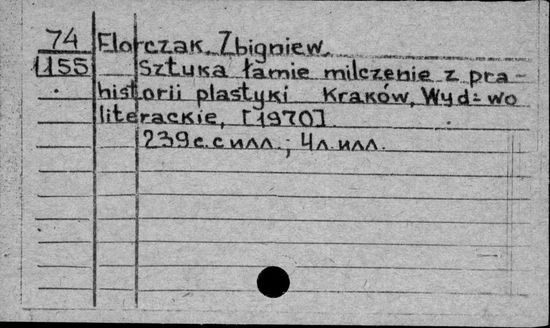 74 Florczak, Zbigniew.
1155 Sztuka łamie milczenie z pra-
historii plastyki Kraków, Wyd-wo
literackie, [1970]
239 с. с илл.; 4 л. илл.